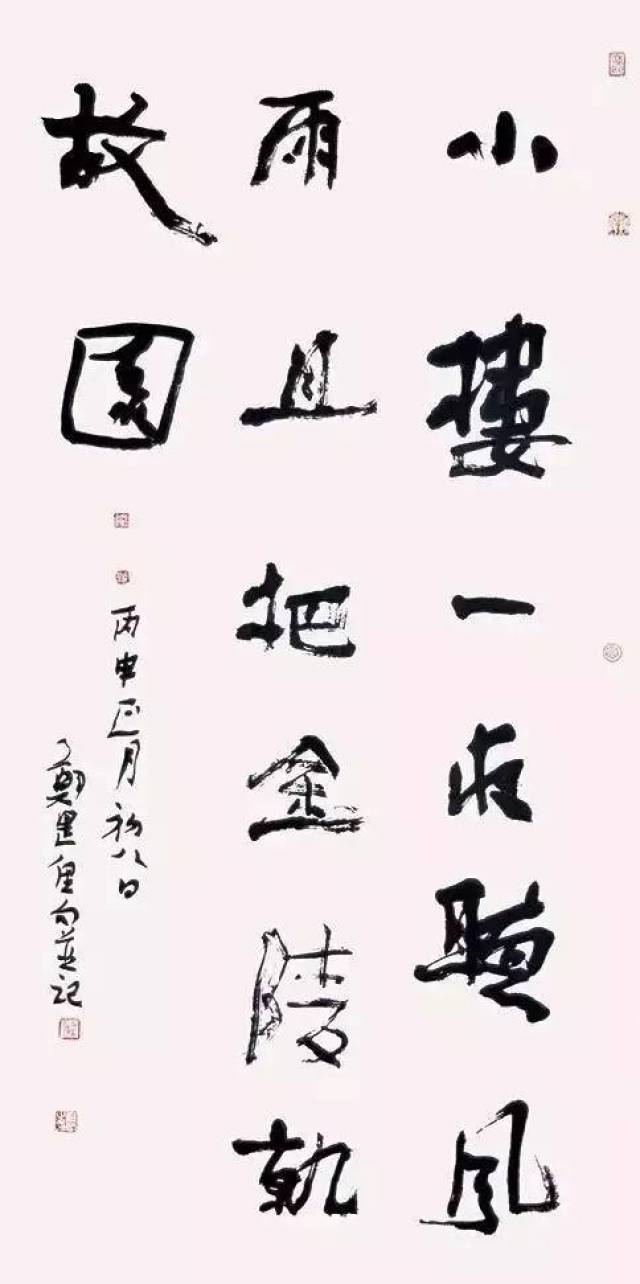 小樓一夜聽風
雨且把金陵
故園
丙申正月初八日
鄭俚句並記